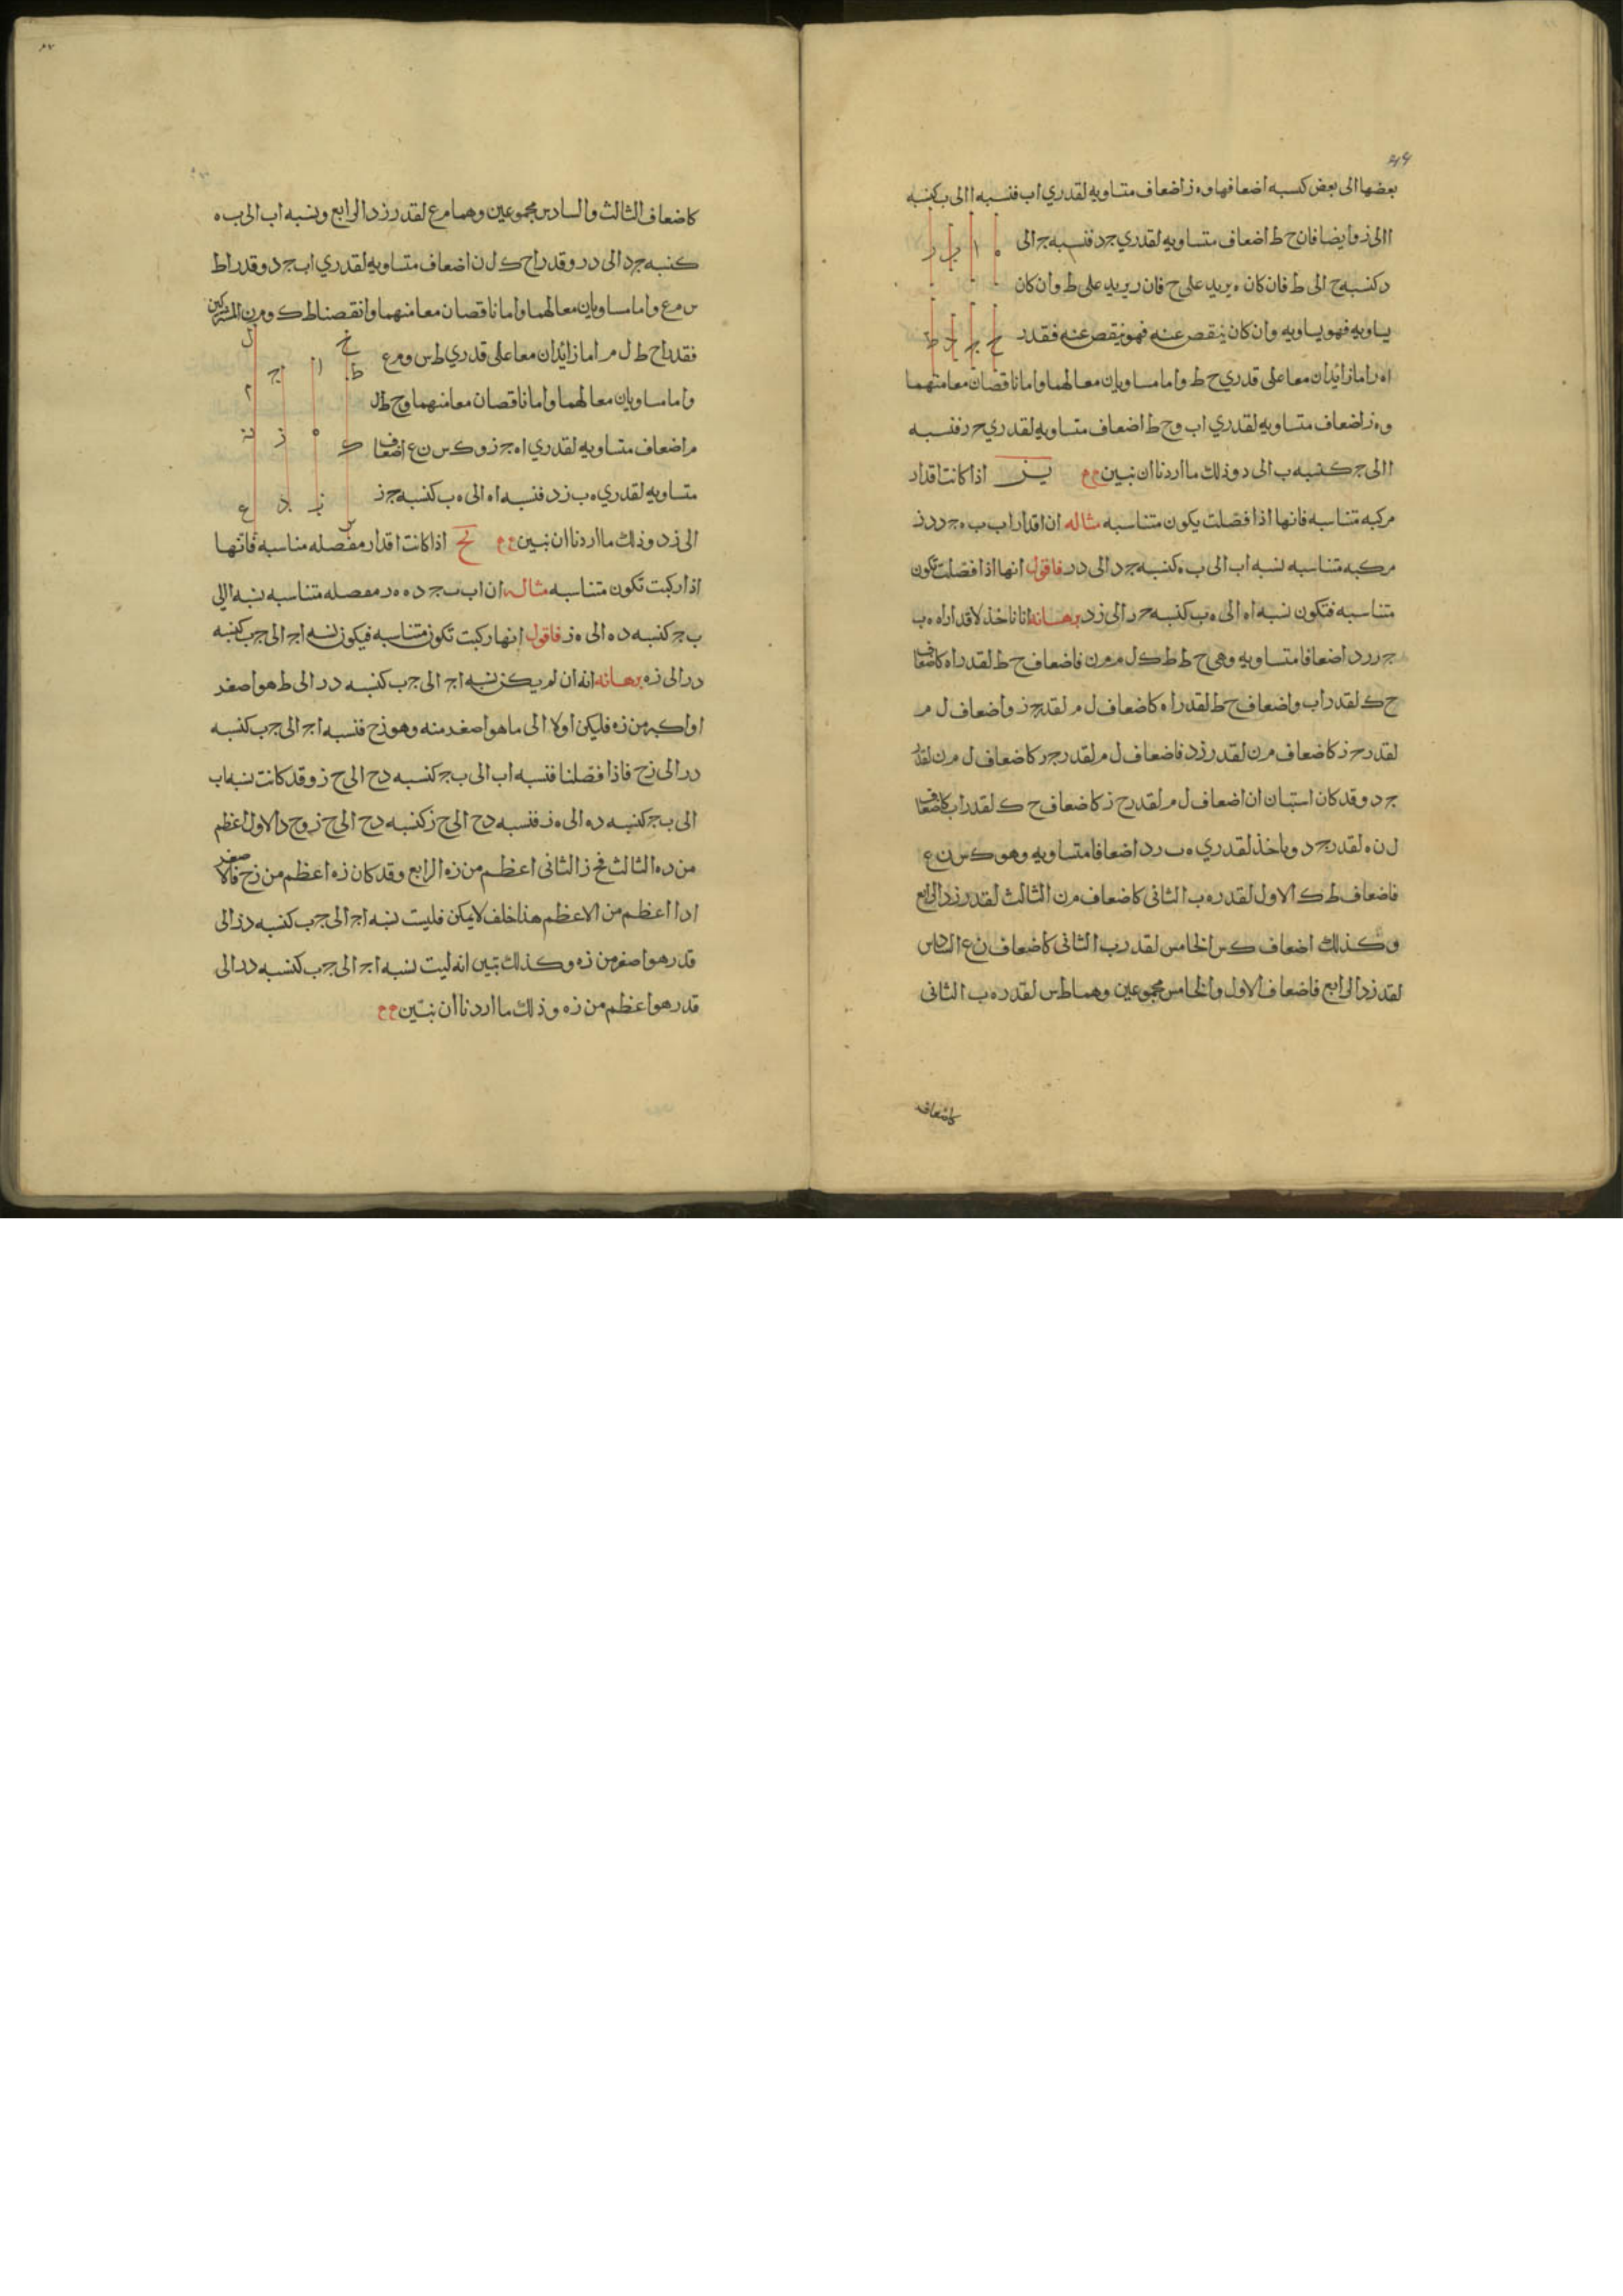 بعضها الى بعض كنسبه اضعافها و ه ز اضعاف متساويه لقدري ا ب فنسبه ا الى ب كنسبه
ا الى ز وايضا فان ح ط اضعاف متساويه لقدري ج د فنسبه ج الى
د كنسبه ح الى ط فان كان ه يزيد على ح فان ز يزيد على ط وان كان
يساويه فهو يساويه وان كان ينقص عنه فهو ينقص عنه فقدر
ا ه ز اما زايدان معا على قدري ح ط واما مساويان معا لهما واما ناقصان معا منهما
و ه ز اضعاف متساويه لقدري ا ب و ح ط اضعاف متساويه لقدري ح ر فنسبه
ا الى ج كنسبه ب الى د وذلك ما اردنا ان نبين يز اذا كانت اقدار
مركبه متناسبه فانها اذا فصلت يكون متناسبه مثاله ان اقدار ا ب ب ه ج د د ز
مركبه متناسبه نسبه ا ب الى ب ه كنسبه ج د الى د ر فاقول انها اذا فصلت تكون
متناسبه فتكون نسبه ا ه الى ه ب كنسبه ح ر الى ز د برهانه انا ناخذ لاقدار ا ه ه ب
ج ر ر د اضعافا متساويه وهى ح ط ط ك ل م م ن فاضعاف ح ط لقدر ا ه كاضعاف
ح ك لقدر ا ب واضعاف ح ط لقدر ا ه كاضعاف ل م لقدر ج ز واضعاف ل م
لقدر ح ز كاضعاف م ن لقدر ز د فاضعاف ل م لقدر ج ر كاضعاف ل م ن لقدر
ج د وقد كان استبان ان اضعاف ل م لقدر ح ز كاضعاف ح ك لقدر ا ب كاضعاف
ل ن ه لقدر ج د وياخذ لقدري ه ب ر د اضعافا متساويه وهو ك س ن ع
فاضعاف ط ك الاول لقدر ه ب الثانى كاضعاف م ن الثالث لقدر ز د الرابع
وكذلك اضعاف ك س الخامس لقدر ب الثانى كاضعاف ن ع السادس
لقدر ز د الرابع فاضعاف الاول والخامس مجموعين وهما ط س لقدر ه ب الثانى
كاضعاف
كاضعاف الثالث والسادس مجموعين وهما م ع لقدر ز د الرابع ونسبه ا ب الى ب ه
كنسبه ج د الى د ر وقدرا ح ك ل ن اضعاف متساويه لقدري ا ب ج د وقدرا ط
س م ع واما مساويان معا لهما واما ناقصان معا منهما وانقصنا ط ك و م ن المشتركين
فقدرا ح ط ل م اما زائدان معا على قدري ط س و م ع
واما مساويان معا لهما واما ناقصان معا منهما و ح ط ل
م اضعاف متساويه لقدري ا ه ج ز و ك س ن ع اضعاف
متساويه لقدري ه ب ز د فنسبه ا ه الى ه ب كنسبه ج ز
الى ز د وذلك ما اردنا ان نبين يح اذا كانت اقدار مفصله مناسبه فانها
اذا ركبت تكون متناسبه مثاله ان ا ب ب ج د ه ه ر مفصله متناسبه نسبه ا الى
ب ج كنسبه د ه الى ه ز فاقول انها ركبت تكون متناسبه فيكون نسبه ا ج الى ج ب كنسبه
د ر الى ز ه برهانه انه ان لم يكن نسبه ا ج الى ج ب كنسبه د ر الى ط هو اصغر
او اكبر من ز ه فليكن اولا الى ما هو اصغر منه وهو ز ح فنسبه ا ج الى ج ب كنسبه
د ر الى ز ح فاذا فصلنا فنسبه ا ب الى ب ج كنسبه د ح الى ح ز وقد كانت نسبه ا ب
الى ب ج كنسبه د ه الى ه ز فنسبه د ح الى ح ز كنسبه د ح الى ح ز و ح د الاول اعظم
من د ه الثالث فح ز الثانى اعظم من ز ه الرابع وقد كان ز ه اعظم من ز ح فالاصغر
اذا اعظم من الاعظم هذا خلف لا يمكن فليست نسبه ا ج الى ج ب كنسبه د ز الى
قدر هو اصغر من ز ه وكذلك تبين انه ليست نسبه ا ج الى ج ب كنسبه د ر الى
قدر هو اعظم من ز ه وذلك ما اردنا ان نبين